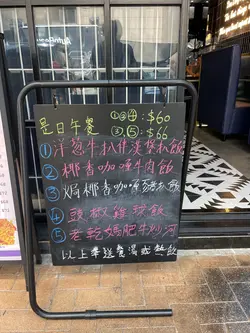 是日午餐
①②④:$60
③,⑤:$66
①洋葱牛扒伴漢堡扒飯
②椰香咖喱牛肉飯
③焗椰香咖喱豬扒飯
④豉椒雞球飯
⑤老乾媽肥牛炒河
以上奉送餐湯或熱飲